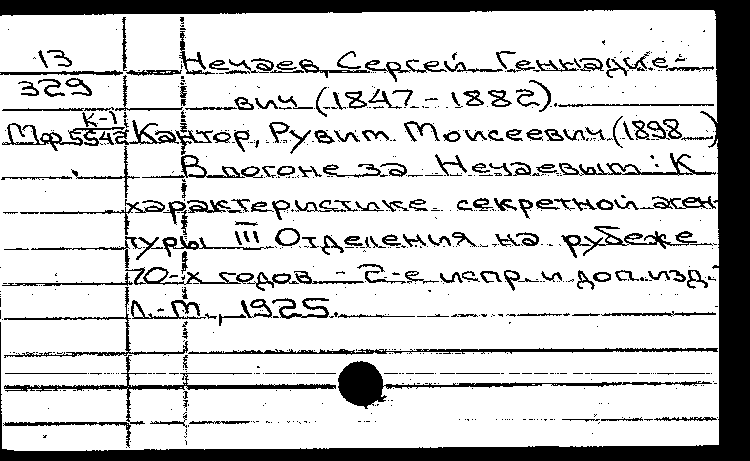 13 Нечаев, Сергей Геннадие-
329 вич (1847-1882).
К-1
Мф 5542 Кантор, Рувим Моисеевич (1898 )
В погоне за Нечаевым: К
характеристике секретной аген-
туры III Отделения на рубеже
70-х годов. - 2-е испр. и доп. изд.-
Л.-М., 1925.